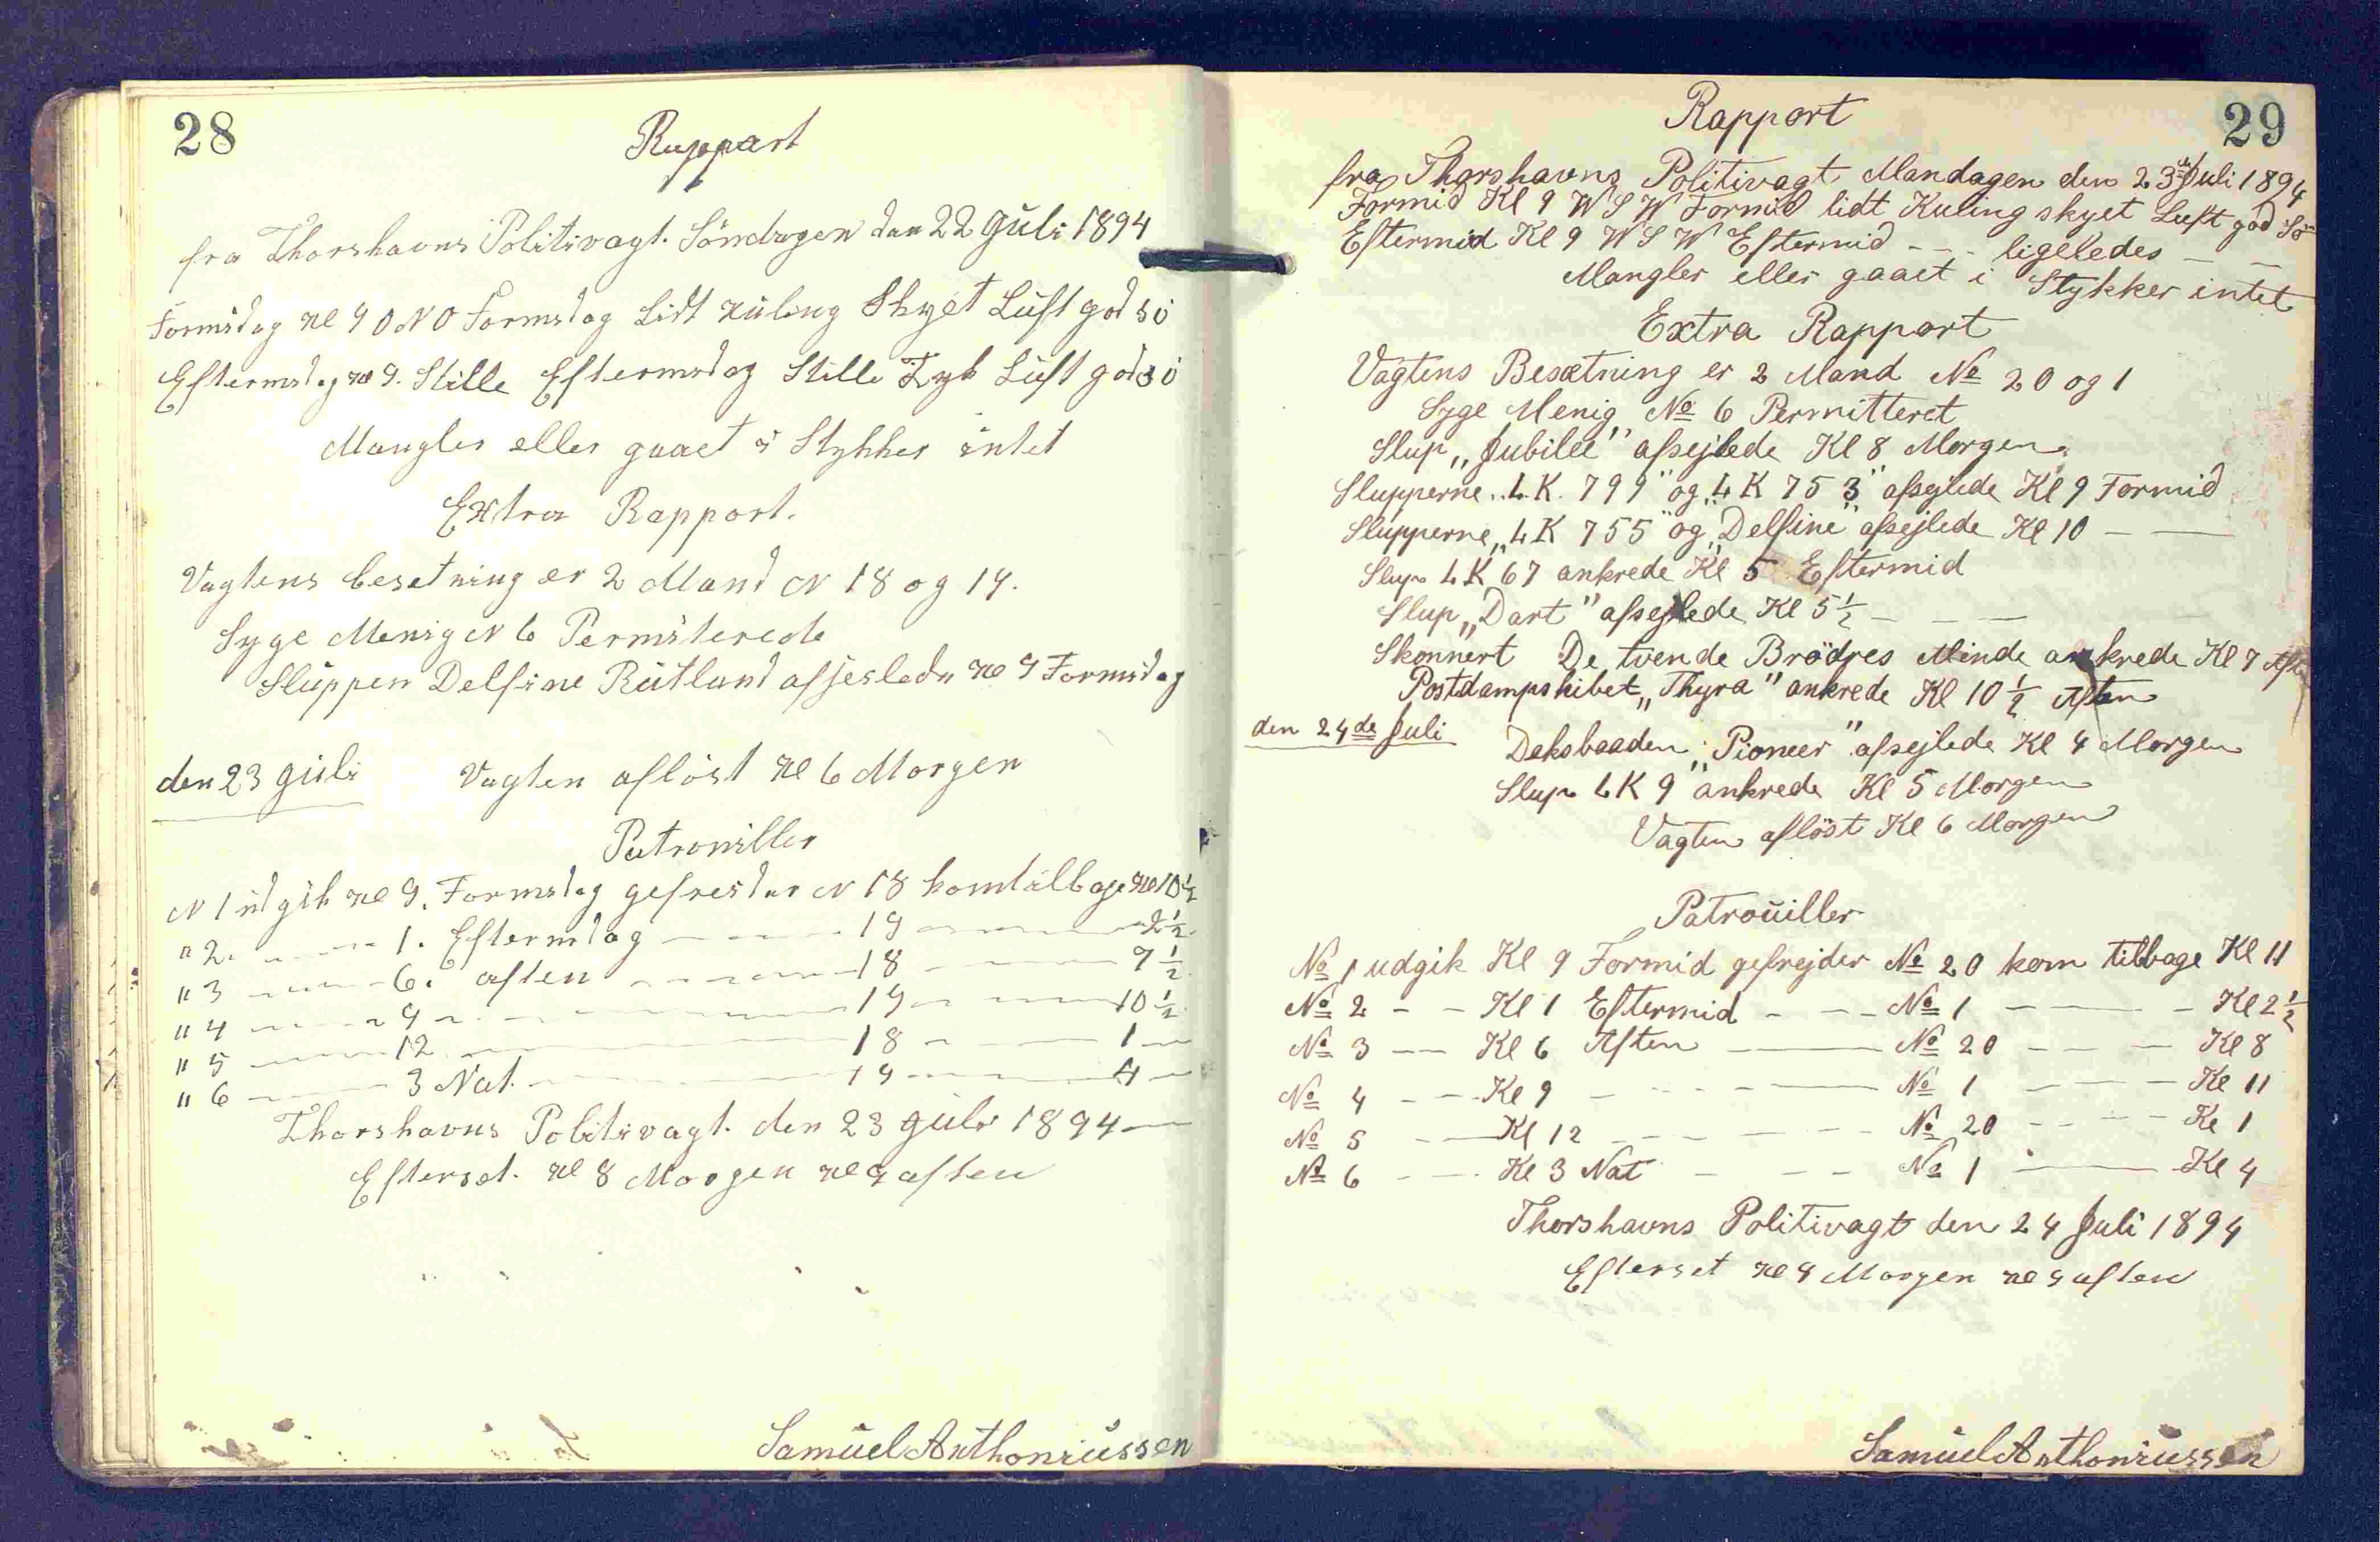 28
Rappart
fra Thorshavns Politivagt. Söndagen den 22 Juli 1894
Formidag Kl 9 O N O Formidag Lidt Kuling Skyet Luft god Sö
Eftermidag Kl 9. Stille Eftermidag Stille Tyk Luft god Sö
Mangler eller gaaet i Stykker intet
Extra Rapport.
Vagtens besetning er 2 Mand N 18 og 19.
Syge Menig N 6 Permiterede
Sluppen Delfine Rutland afsejlede Kl 9 Formidag
den 23 Juli Vagten aflöst Kl 6 Morgen
Patrouiller
N 1 udgik Kl 9. Formidag gefreider N 18 kom tilbage Kl 10½
" 2. — — 1. Eftermidag — — 19 — — 2½
" 3 — — 6. aften — — 18 — — 7½
" 4 — — 9 — — 19 — — 10½
" 5 — — 12 — — 18 — — 1 —
" 6 — — 3 Nat. — — 19 — — 4 —
Thorshavns Politivagt. den 23 Juli 1894 —
Efterset. Kl 8 Morgen Kl 9 aften
Samuel Anthoniussen
29
Rapport
fra Thorshavns Politivagt Mandagen den 23de Juli 1894
Formid Kl 9 W S W Formid lidt Kuling skyet Luft god Sö
Eftermid Kl 9 W S W Eftermid - - - ligeledes — —
Mangler eller gaaet i Stykker intet
Extra Rapport
Vagtens Besætning er 2 Mand No 20 og 1
Syge Menig No 6 Permitteret
Slup „Jubilee" afsejlede Kl 8 Morgen
Slupperne „L.K. 799" og „L K 753" afsejlede Kl 9 Formid
Slupperne „L K 755" og „Delfine" afsejlede Kl 10 — —
Slup L K 67 ankrede Kl 5 Eftermid
Slup „Dart" afsejlede Kl 5½ — — —
Skonnert De tvende Brödres Minde ankrede Kl 7 Aften
Postdampskibet „Thyra" ankrede Kl 10½ Aften
den 24de Juli Deksbaaden „Pioneer" afsejlede Kl 4 Morgen
Slup L K 9 ankrede Kl 5 Morgen
Vagten aflöst Kl 6 Morgen
Patrouiller
No 1 udgik Kl 9 Formid gefrejder No 20 kom tilbage Kl 11
No 2 - - Kl 1 Eftermid - - - No 1 — — Kl 2½
No 3 — Kl 6 Aften — — No 20 - — — Kl 8
No 4 - - Kl 9 - - - — No 1 — — Kl 11
No 5 - — Kl 12 - - - — No 20 - - - Kl 1
No 6 - — Kl 3 Nat - - - No 1 — — Kl 4
Thorshavns Politivagt den 24 Juli 1894
Efterset Kl 8 Morgen Kl 9 aften
Samuel Anthoniussen